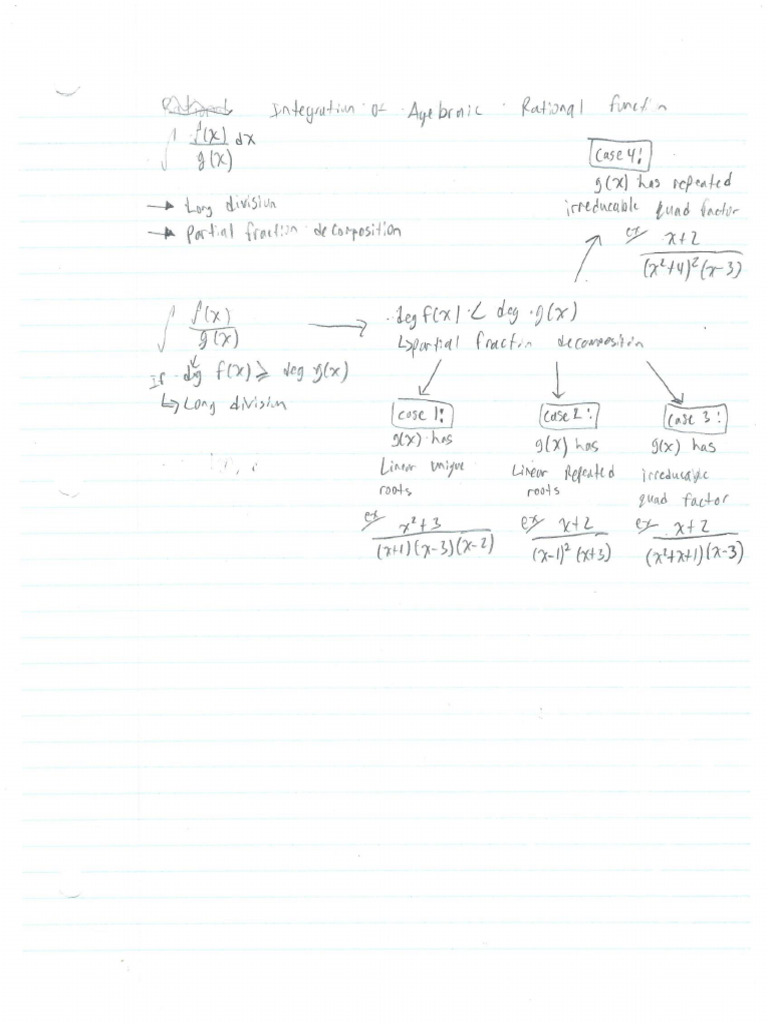 Integration of Agebraic Rational function
∫ f(x)/g(x) dx
→ Long division
→ Partial fraction decomposition
Case 4:
g(x) has repeated
irreducable quad factor
ex x+2/(x²+4)²(x-3)
∫ f(x)/g(x) → deg f(x) < deg g(x)
↳ partial fraction decomposition
If deg f(x) ≥ deg g(x)
↳ Long division
Case 1:
g(x) has
Linear unique
roots
ex x²+3/(x+1)(x-3)(x-2)
Case 2:
g(x) has
Linear Repeated
roots
ex x+2/(x-1)²(x+3)
Case 3:
g(x) has
irreducable
quad factor
ex x+2/(x²+x+1)(x-3)